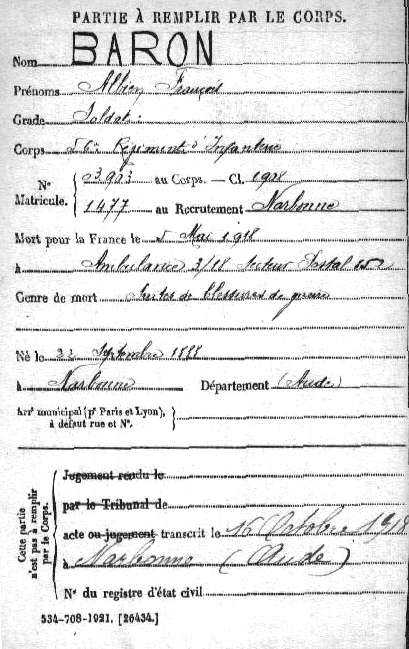 PARTIE À REMPLIR PAR LE CORPS.
Nom BARON
Prénoms Albin François
Grade Soldat
Corps 56e Régiment d'Infanterie
N° Matricule. { 03903 au Corps. — Cl. 1908
1477 au Recrutement Narbonne
Mort pour la France le 5 Mai 1918
à Ambulance 3/18 Secteur Postal
Genre de mort Suites de blessures de guerre
Né le 22 Septembre 1888
à Narbonne Département (Aude)
Arrt municipal (pr Paris et Lyon), à défaut rue et N°. }
Cette partie n'est pas à remplir par le Corps. {
Jugement rendu le
par le Tribunal de
acte ou jugement transcrit le 16 Octobre 1918
à Narbonne (Aude)
N° du registre d'état civil
534-708-1921. [26434.]